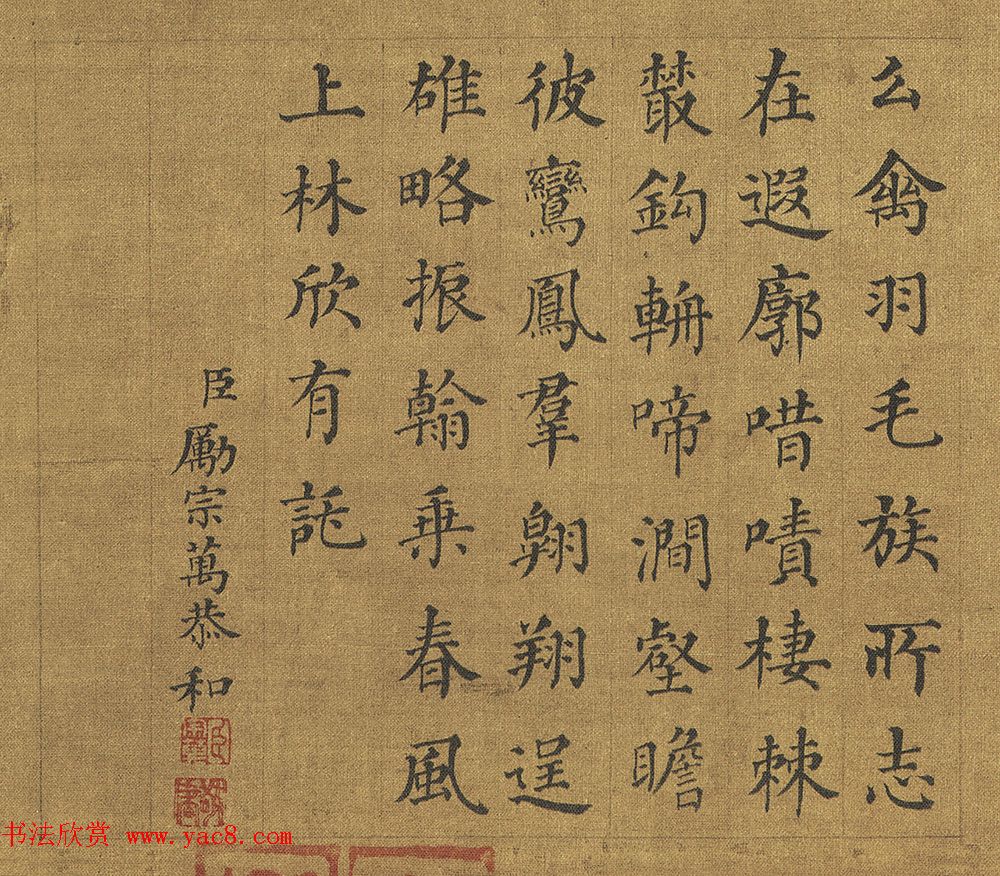 么禽羽毛族所志
在遐廓唶嘖棲棘
叢鈎輈啼澗壑瞻
彼鸞鳳羣翱翔逞
雄略振翰乗春風
上林欣有託
臣勵宗萬恭和
书法欣赏 www.yac8.com